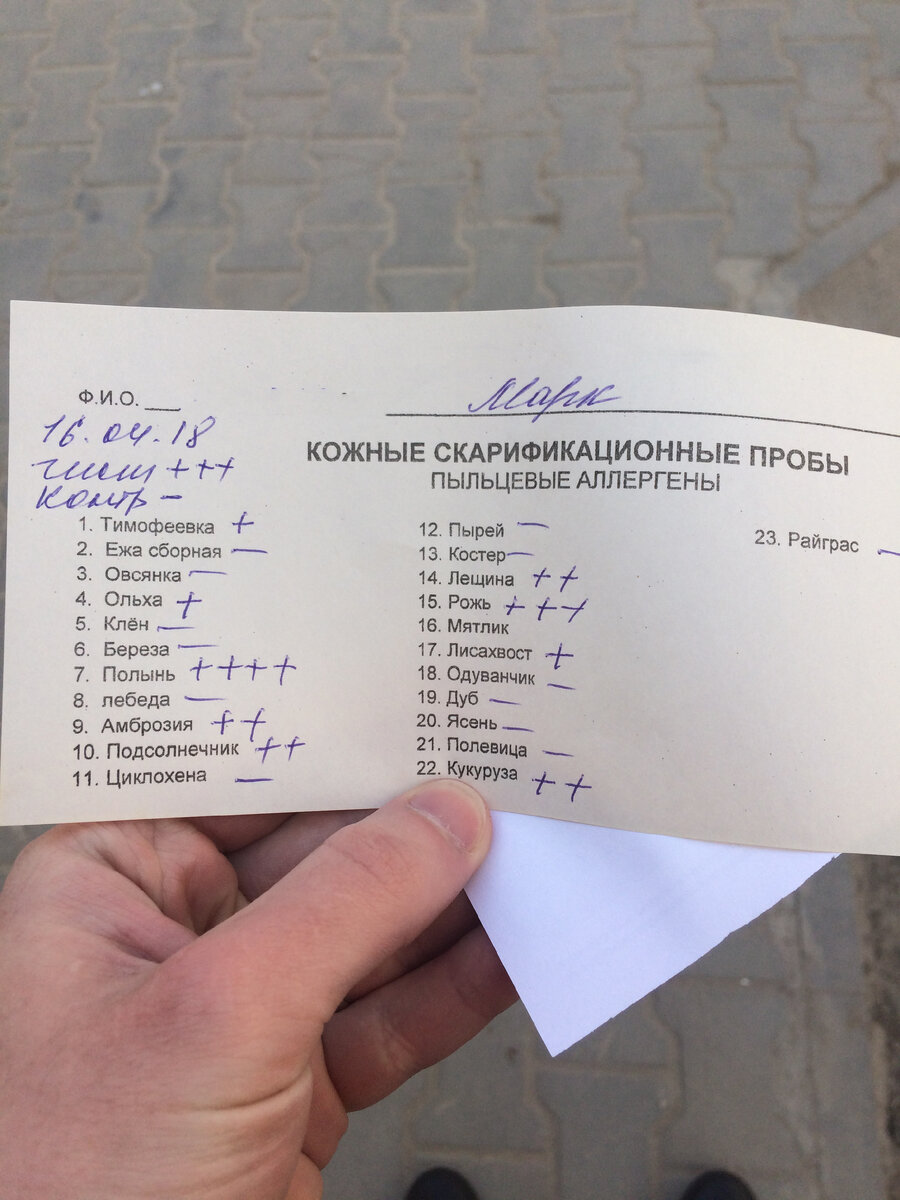 Ф.И.О. __ Марк
16.04.18
гист +++
контр -
КОЖНЫЕ СКАРИФИКАЦИОННЫЕ ПРОБЫ
ПЫЛЬЦЕВЫЕ АЛЛЕРГЕНЫ
1. Тимофеевка +
2. Ежа сборная —
3. Овсянка —
4. Ольха +
5. Клён —
6. Береза —
7. Полынь ++++
8. лебеда —
9. Амброзия ++
10. Подсолнечник ++
11. Циклохена —
12. Пырей —
13. Костер —
14. Лещина ++
15. Рожь +++
16. Мятлик
17. Лисахвост +
18. Одуванчик —
19. Дуб —
20. Ясень —
21. Полевица —
22. Кукуруза ++
23. Райграс —